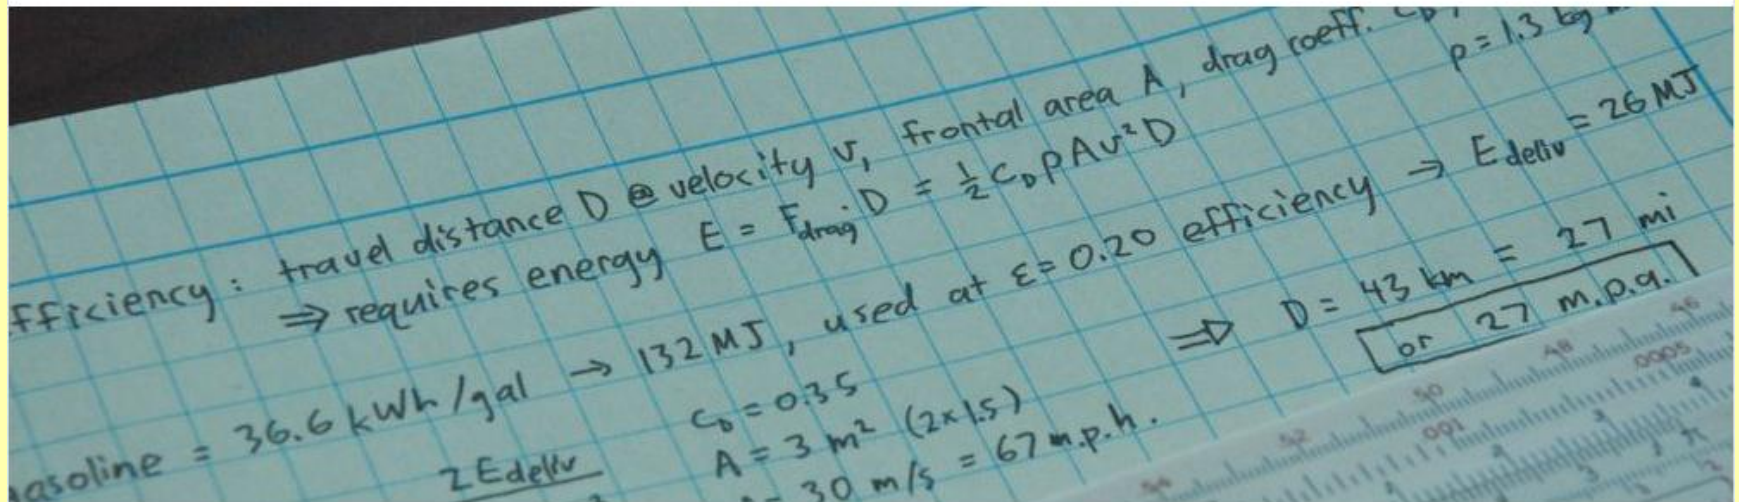 fficiency: travel distance D @ velocity v, frontal area A, drag coeff. C_D,
ρ = 1.3 kg
⇒ requires energy E = F_drag · D = ½ C_D ρ A v² D
asoline = 36.6 kWh/gal → 132 MJ, used at ε = 0.20 efficiency → E_deliv = 26 MJ
2 E_deliv
C_D = 0.35
A = 3 m² (2×1.5)
30 m/s = 67 m.p.h.
⇒ D = 43 km = 27 mi
or 27 m.p.g.
54 52 50 48 46
001 0005